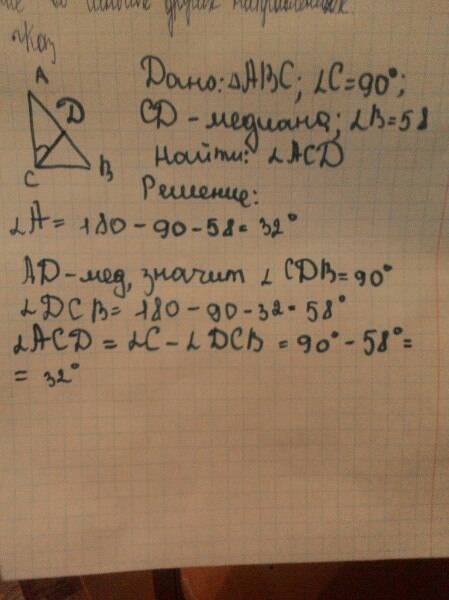 других направлениях.
A
D
C
B
Дано: △ABC; ∠C=90°;
CD - медиана; ∠B=58
Найти: ∠ACD
Решение:
∠A = 180 - 90 - 58 = 32°
AD - мед, значит ∠CDB = 90°
∠DCB = 180 - 90 - 32 = 58°
∠ACD = ∠C - ∠DCB = 90° - 58° =
= 32°